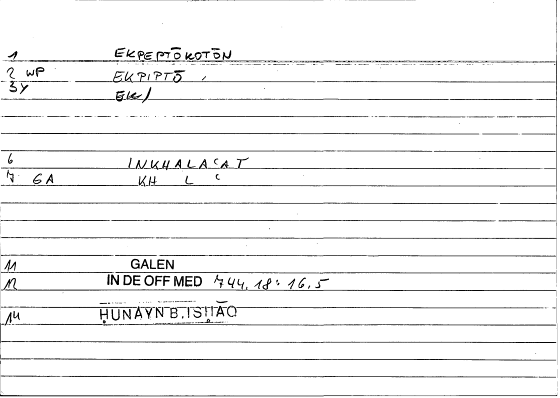 1 EKPEPTŌKOTŌN
2 WP EKPIPTŌ
3 Y EK/
6 INKHALAʿAT
7 GA KH L ʿ
11 GALEN
12 IN DE OFF MED 744,18: 16,5
14 ḤUNAYN B. ISḤĀQ